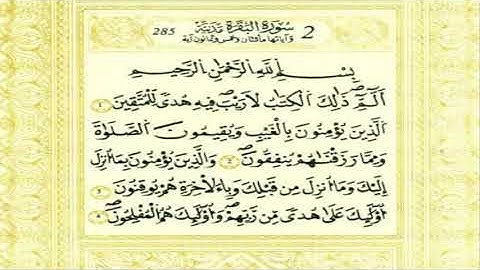 2 سُورَةُ الْبَقَرَةِ مَدَنِيَّة 285
وءاياتها مائتان وخمس وثمانون آية
بِسْمِ اللَّهِ الرَّحْمَٰنِ الرَّحِيمِ
أَلَمِّ ذَٰلِكَ الْكِتَٰبُ لَا رَيْبَ فِيهِ هُدًى لِّلْمُتَّقِينَ
الَّذِينَ يُؤْمِنُونَ بِالْغَيْبِ وَيُقِيمُونَ الصَّلَوٰةَ
وَمِمَّا رَزَقْنَٰهُمْ يُنفِقُونَ وَالَّذِينَ يُؤْمِنُونَ بِمَا أُنزِلَ
إِلَيْكَ وَمَا أُنزِلَ مِن قَبْلِكَ وَبِالْأَخِرَةِ هُمْ يُوقِنُونَ
أُوْلَٰئِكَ عَلَىٰ هُدًى مِّن رَّبِّهِمْ وَأُوْلَٰئِكَ هُمُ الْمُفْلِحُونَ